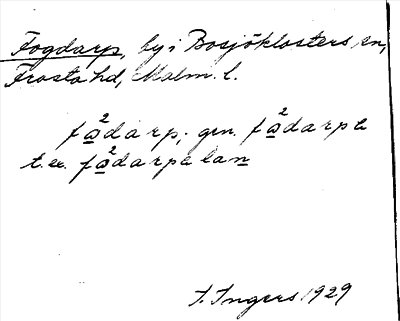 Fogdarp, by i Bosjöklosters sn,
Frosta hd, Malm. l.
fo̲²darp; gen. fo̲²darpa
t. ex. fo̲²darpalan̲
I. Ingers 1929